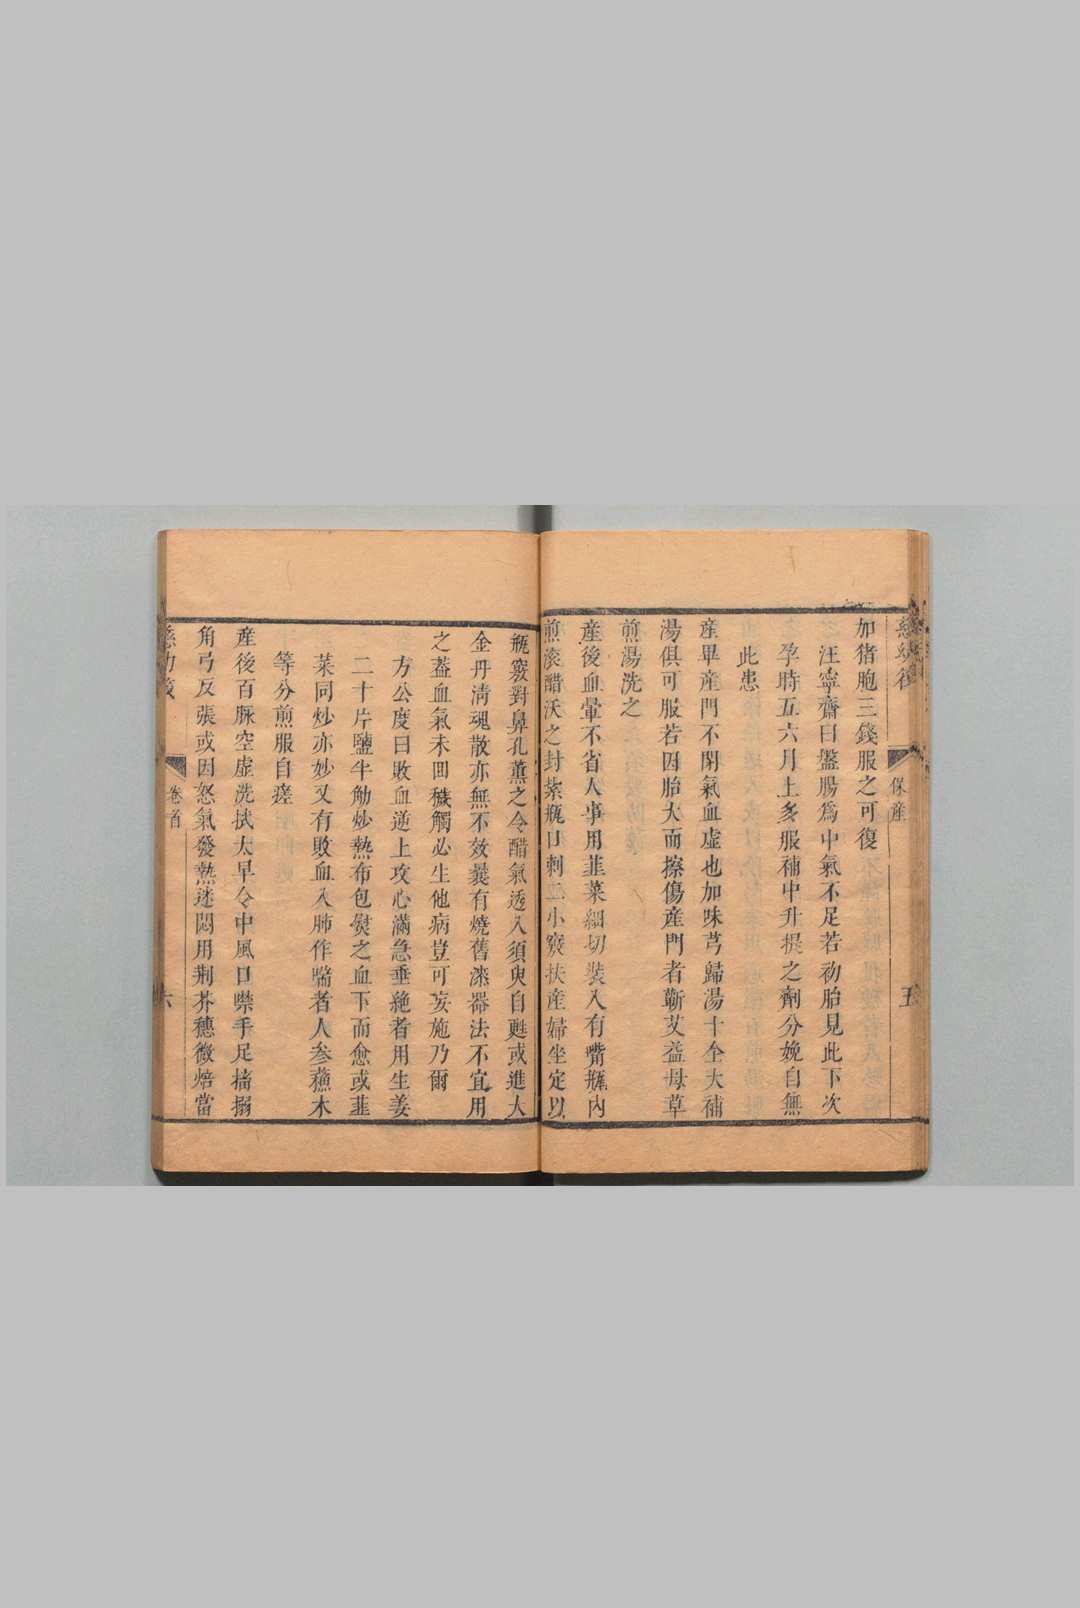 慈幼筏
保産
五
加猪胞三錢服之可復
汪寧齋曰盤腸爲中氣不足若初胎見此下次
孕時五六月上多服補中升提之劑分娩自無
此患
産畢産門不閉氣血虚也加味芎歸湯十全大補
湯俱可服若因胎大而擦傷産門者蘄艾益母草
煎湯洗之
産後血暈不省人事用韮菜細切裝入有嘴瓶内
煎滚醋沃之封紮瓶口刺一小竅扶産婦坐定以
瓶竅對鼻孔薰之令醋氣透入須臾自甦或進大
金丹清魂散亦無不效曩有燒舊漆器法不宜用
之葢血氣未囬穢觸必生他病豈可妄施乃爾
方公度曰敗血逆上攻心滿急垂絶者用生姜
二十片鹽牛觔炒熱布包熨之血下而愈或韮
菜同炒亦妙又有敗血入肺作喘者人參蘓木
等分煎服自瘥
産後百脉空虚洗拭太早令中風口噤手足搐搦
角弓反張或因怒氣發熱迷悶用荆芥穗微焙當
慈幼筏
卷首
六